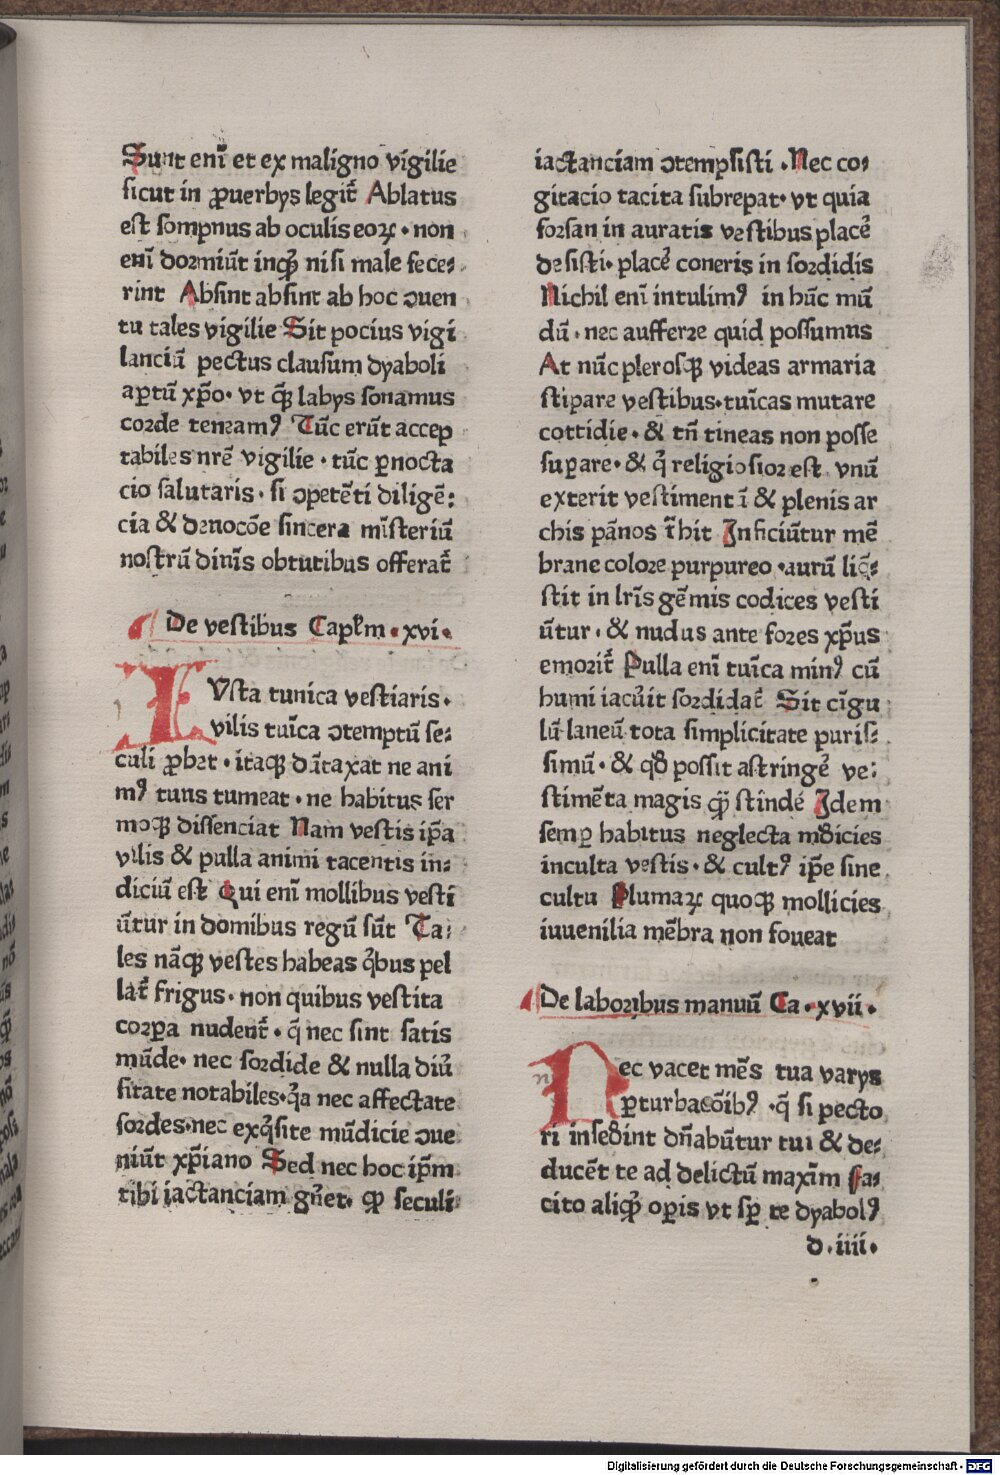 Sunt enī et ex maligno vigilie
sicut in ꝓuerbys legit᷑ Ablatus
est sompnus ab oculis eoꝝ · non
enī dormiūt inqͥꝫ nisi male fece⸗
rint Absint absint ab hoc ꝯuen
tu tales vigilie Sit pocius vigi
lanciū pectus clausum dyaboli
aꝑtū xp̄o· vt qd̄ labys sonamus
corde teneamꝰ Tūc erūt accep
tabiles nr̄e vigilie · tūc ꝑnocta
cio salutaris · si ꝯpetēti diligē⸗
cia & deuocōe sincera mīsteriū
nostrū diuīs obtutibus offerat᷑
De vestibus Caplm̄ · xvi·
IVsta tunica vestiaris·
vilis tuīca ꝯtemptū se⸗
culi ꝓbet · itaqꝫ dūtaxat ne ani
mꝰ tuus tumeat · ne habitus ser
moqꝫ dissenciat Nam vestis ip̄a
vilis & pulla animi tacentis in⸗
diciū est Qui enī mollibus vesti
ūtur in domibus regū sūt Ta⸗
les nāqꝫ vestes habeas qͥbus pel
lat᷑ frigus· non quibus vestita
corꝑa nudent᷑ · q̄ nec sint satis
mūde· nec sordide & nulla diuͥ
sitate notabiles·qͣa nec affectate
sordes·nec exqͥsite mūdicie ꝯue
niūt xp̄iano Sed nec hoc ip̄m
tibi iactanciam gn̄et· ꝙ seculi
iactanciam ꝯtempsisti · Nec co⸗
gitacio tacita subrepat· vt quia
forsan in auratis vestibus place᷑
desisti· place᷑ coneris in sordidis
Nichil enī intulimꝰ in hūc mū
dū · nec aufferre quid possumus
At nūc plerosqꝫ videas armaria
stipare vestibus·tuīcas mutare
cottidie · & tn̄ tineas non posse
suꝑare· & q̄ religiosior est vnū
exterit vestimentī & plenis ar
chis pānos t̄hit Inficiūtur mē
brane colore purpureo ·aurū liq̄⸗
stit in lr̄is gēmis codices vesti
ūtur · & nudus ante fores xp̄us
emorit᷑ Pulla enī tuīca minꝰ cū
humi iacuͥit sordidat᷑ Sit cīgu
lū laneū tota simplicitate puris⸗
simū · & qd̄ possit astringe᷑ ve⸗
stimēta magis qͣꝫ stīnde᷑ Idem
semꝑ habitus neglecta mūdicies
inculta vestis · & cultꝰ ip̄e sine
cultu Plumaꝝ quoqꝫ mollicies
iuuenilia mēbra non foueat
De laboribus manuū Ca · xvii·
NEc vacet mēs tua varys
ꝑturbacōibꝰ ·q̄ si pecto
ri insedͥint dn̄abūtur tui & de⸗
ducēt te ad delictū maxīm Fa⸗
cito aliqͥd oꝑis vt sꝑ te dyabolꝰ
d·iiii·
Digitalisierung gefördert durch die Deutsche Forschungsgemeinschaft - DFG